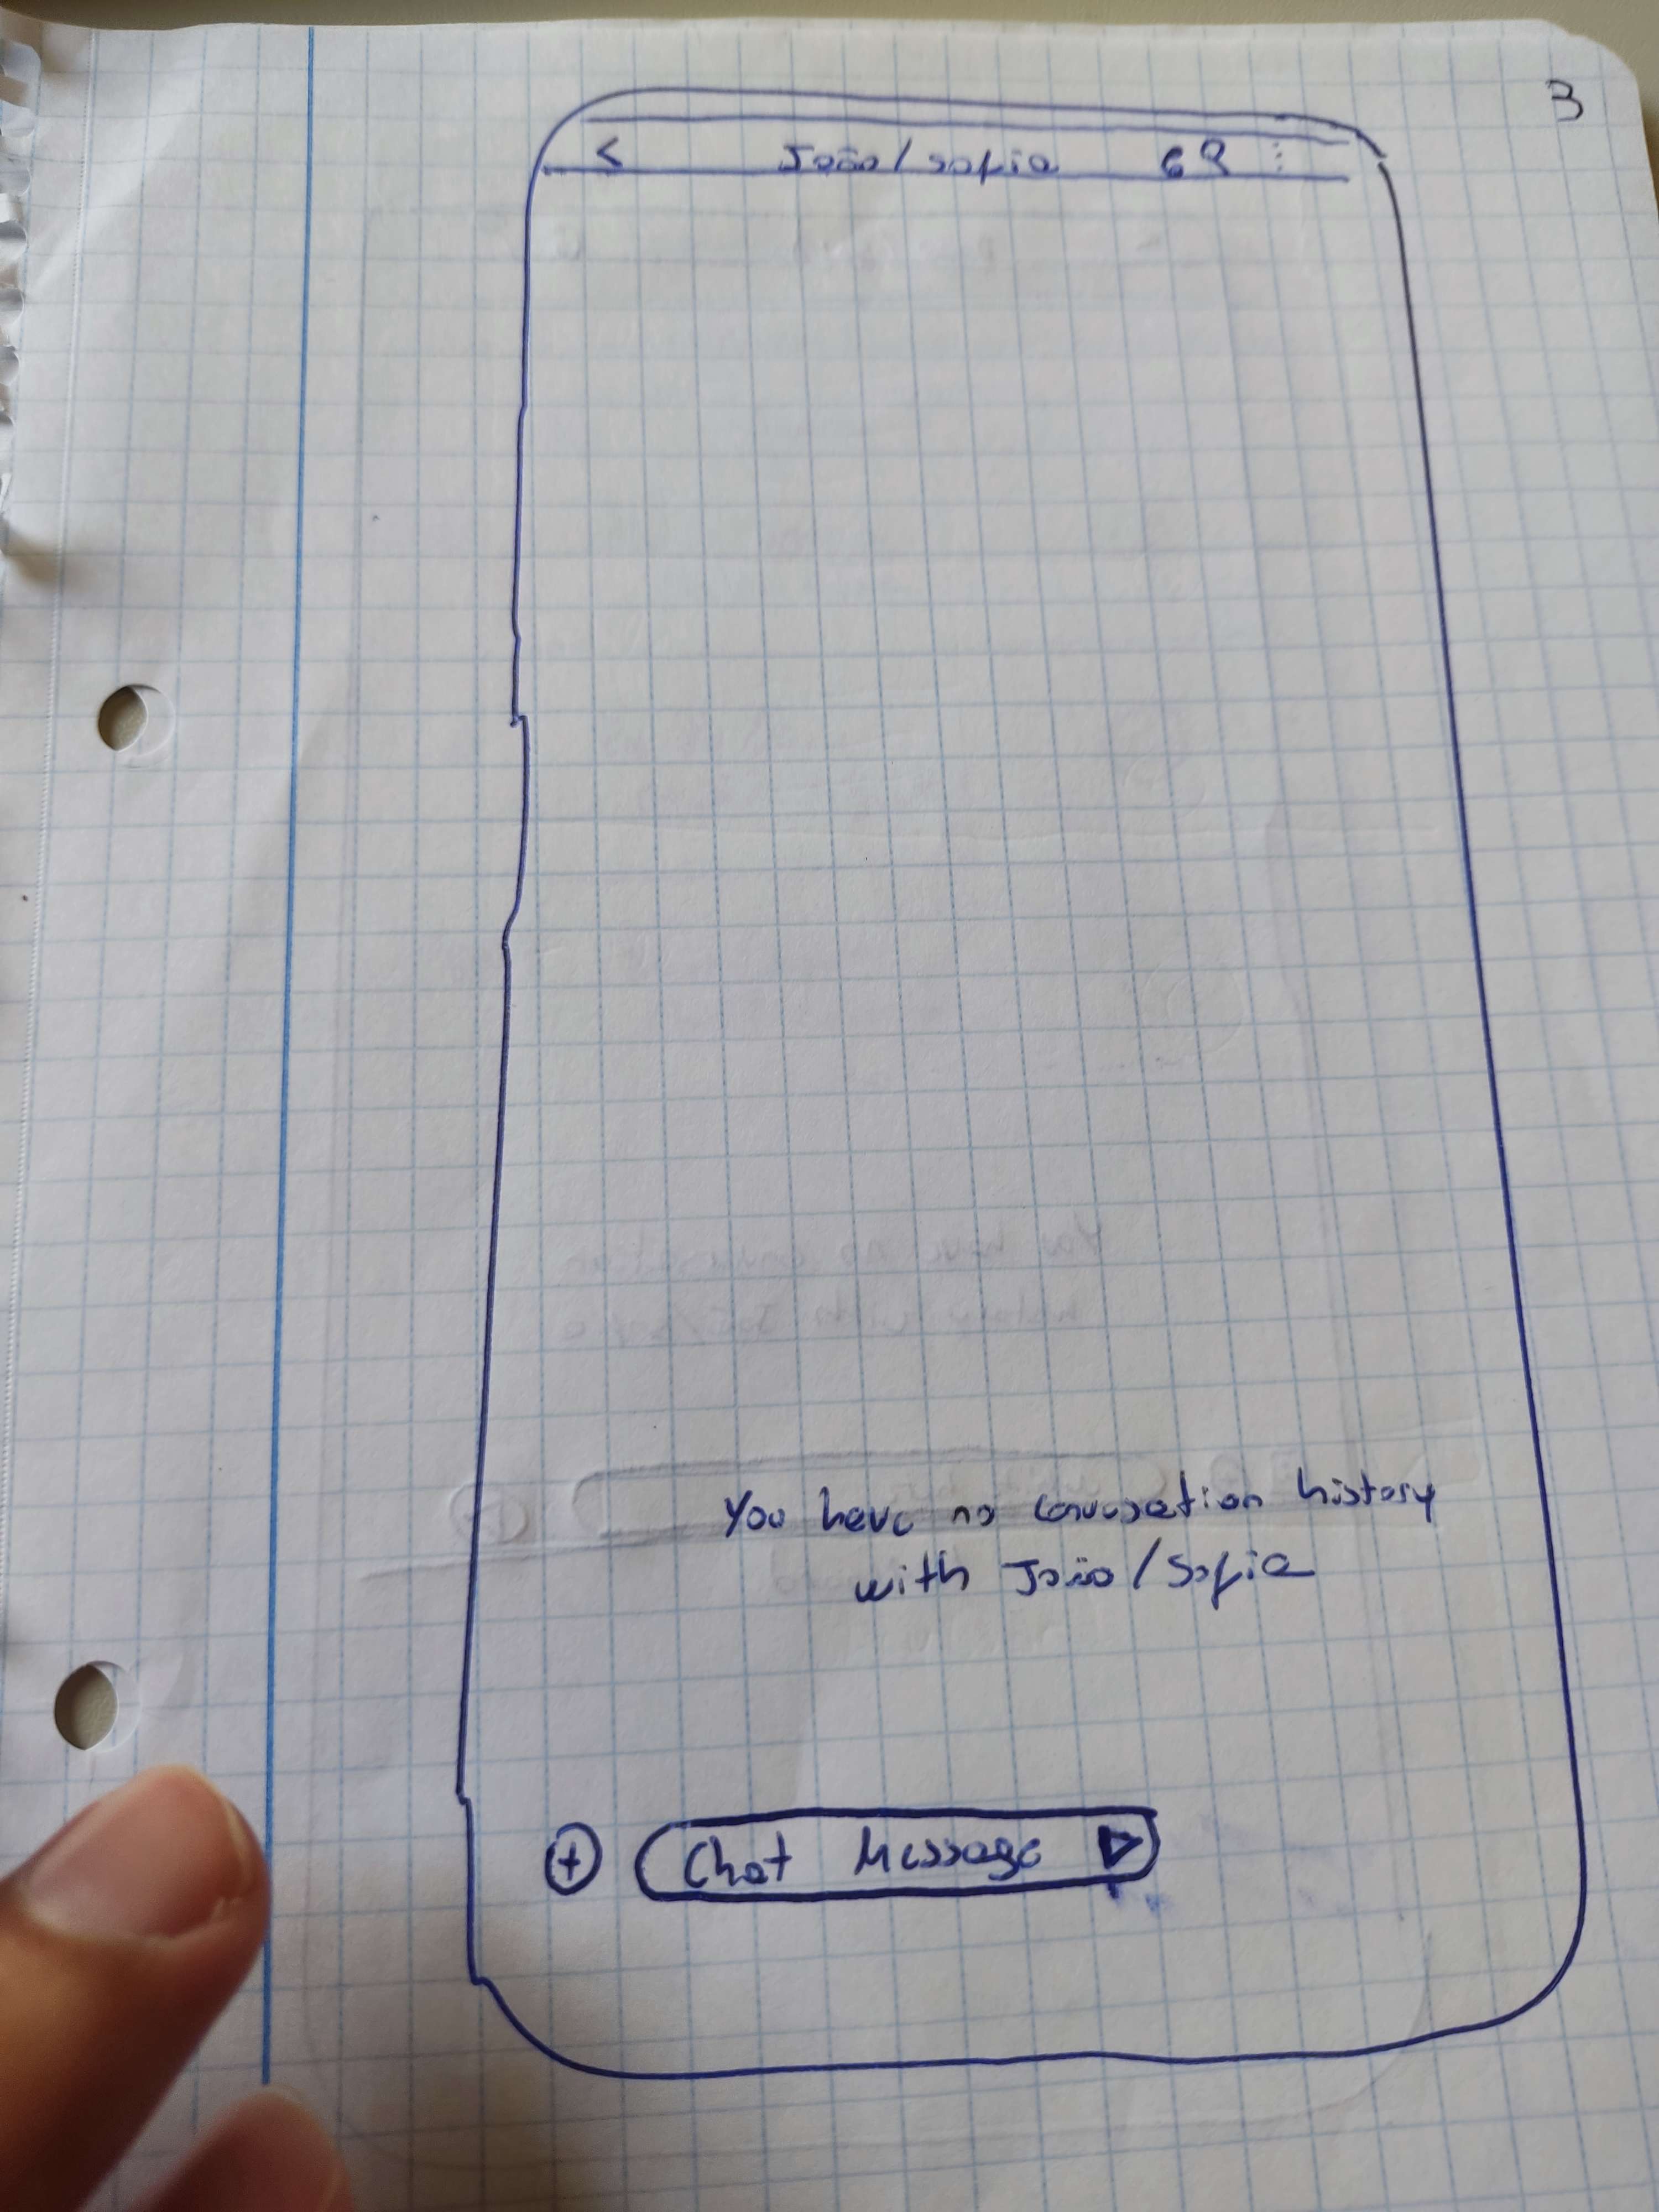 3
< João/Sofia 69 ⋮
You have no conversation history
with João/Sofia
+ Chat Message